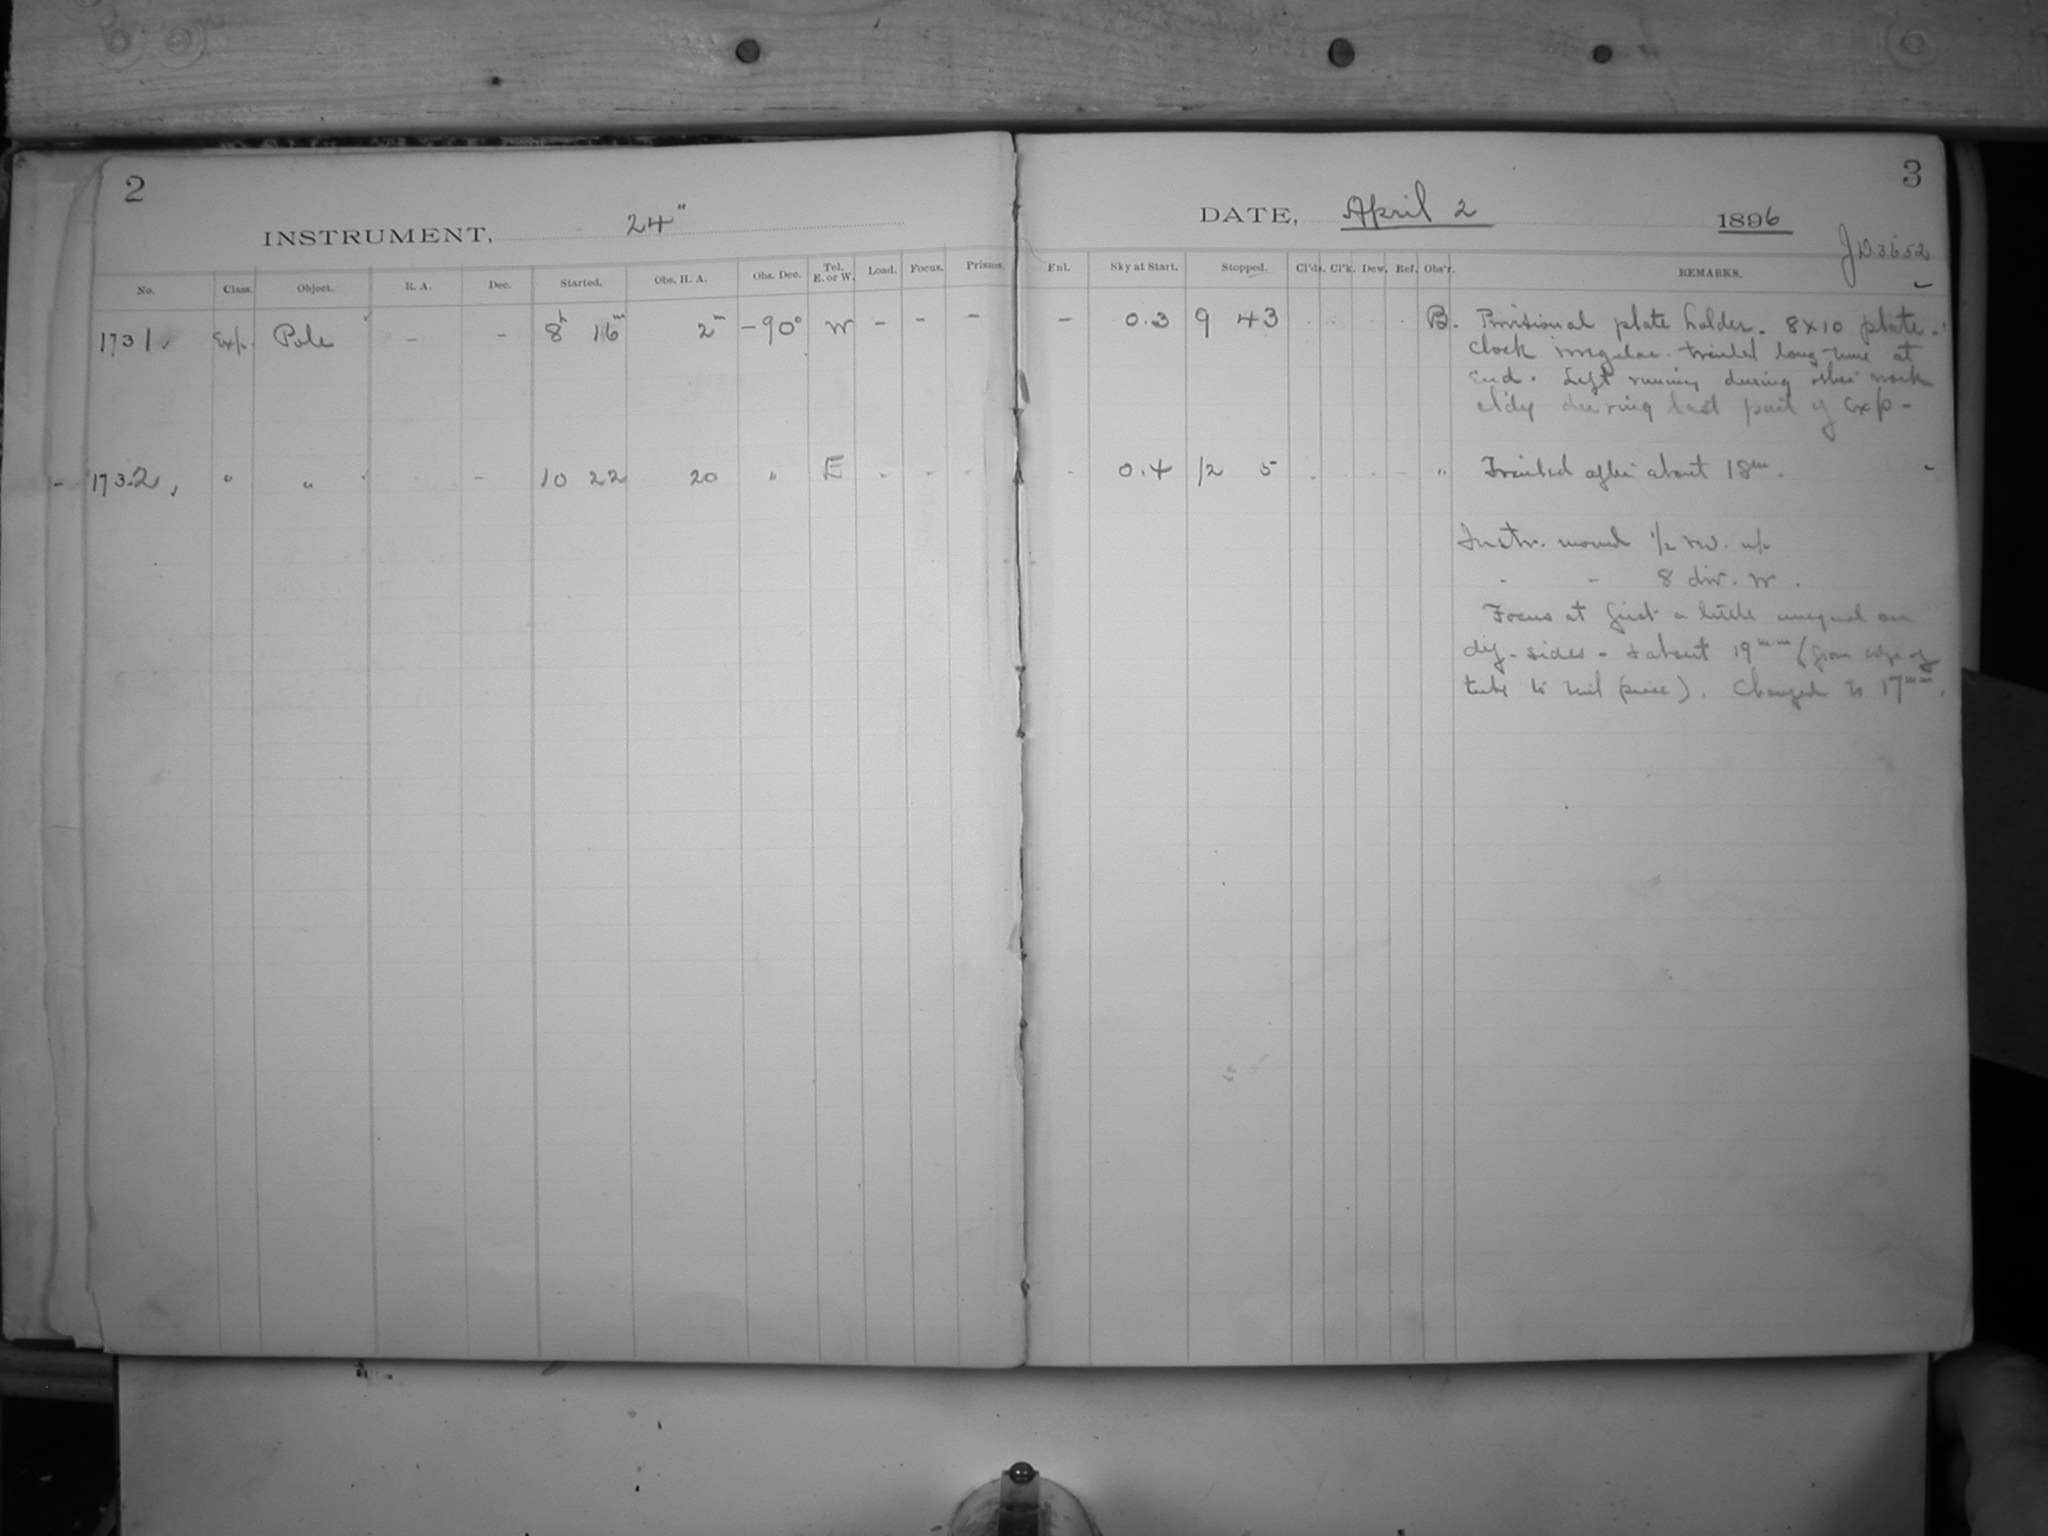 2
INSTRUMENT, 24"
No. Class. Object. R. A. Dec. Started. Obs. H. A. Obs. Dec. Tel. E. or W. Load. Focus. Prisms.
1731. Exp. Pole - - 8h 16m 2m -90° W - - -
1732, " " - 10 22 20 " E - - -
3
DATE, April 2 1896
JD 3652
Enl. Sky at Start. Stopped. Cl'ds. Cl'k. Dew. Ref. Obs'r. REMARKS.
- 0.3 9 43 B. Provisional plate holder. 8x10 plate.
Clock irregular. trailed long time at
end. Left running during other work
cldy during last part of Exp-
- 0.4 12 5 " Trailed after about 18m.
Instr. moved 1/2 rev. up
" " 8 div. W.
Focus at first a little unequal on
dif. sides - & about 19mm (from edge of
tube to tail piece). Changed to 17mm.